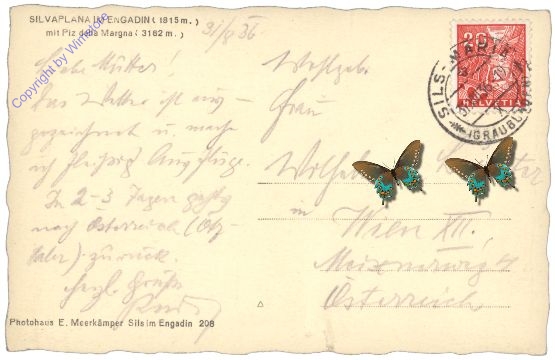 SILVAPLANA IM ENGADIN (1815 m.)
mit Piz della Margna (3162 m.)
Copyright by Winstore
31/ 36
Liebe Mutter!
Das Wetter ist aus-
gezeichnet u. mache
ich fleißig Ausflüge.
In 2-3 Tagen
nach Österreich (Ötz-
taler) zurück.
Herzl. Grüße
Wohlgeb.
Frau
in
Wien XII.
Österreich
20
HELVETIA
SILS-MARIA
(GRAUBÜNDEN)
Photohaus E. Meerkämper Sils im Engadin 208